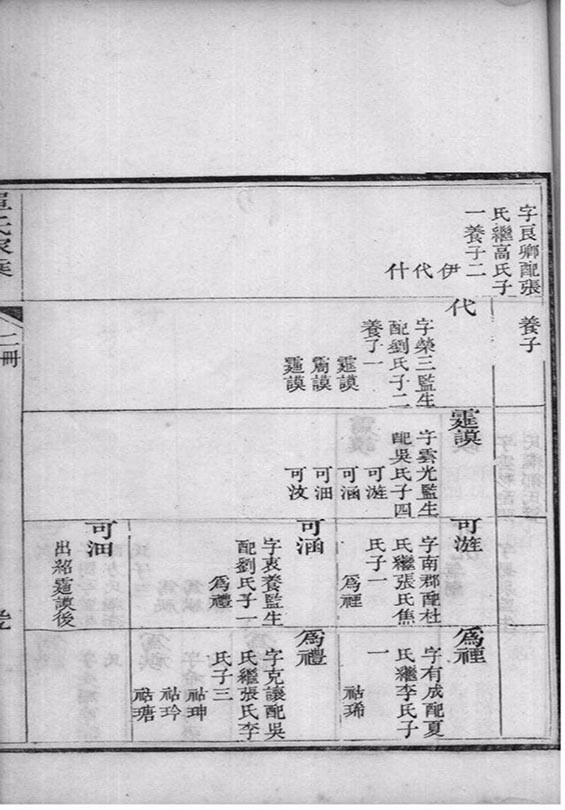 字良卿配張
氏繼高氏子
一養子二
伊
代
什
養子
代
字榮三監生
配劉氏子二
養子一
霆謨
謨
謨
霆謨
字雲光監生
配吳氏子四
可
可涵
可沺
可汶
可
字南郡配杜
氏繼張氏焦
氏子一
爲禋
可涵
字衷養監生
配劉氏子一
爲禮
可沺
出紹謨後
爲禋
字有成配夏
氏繼李氏子
一
祜琋
爲禮
字克讓配吳
氏繼張氏李
氏子三
祜珅
祜玲
祜瑭
氏家乘
二冊